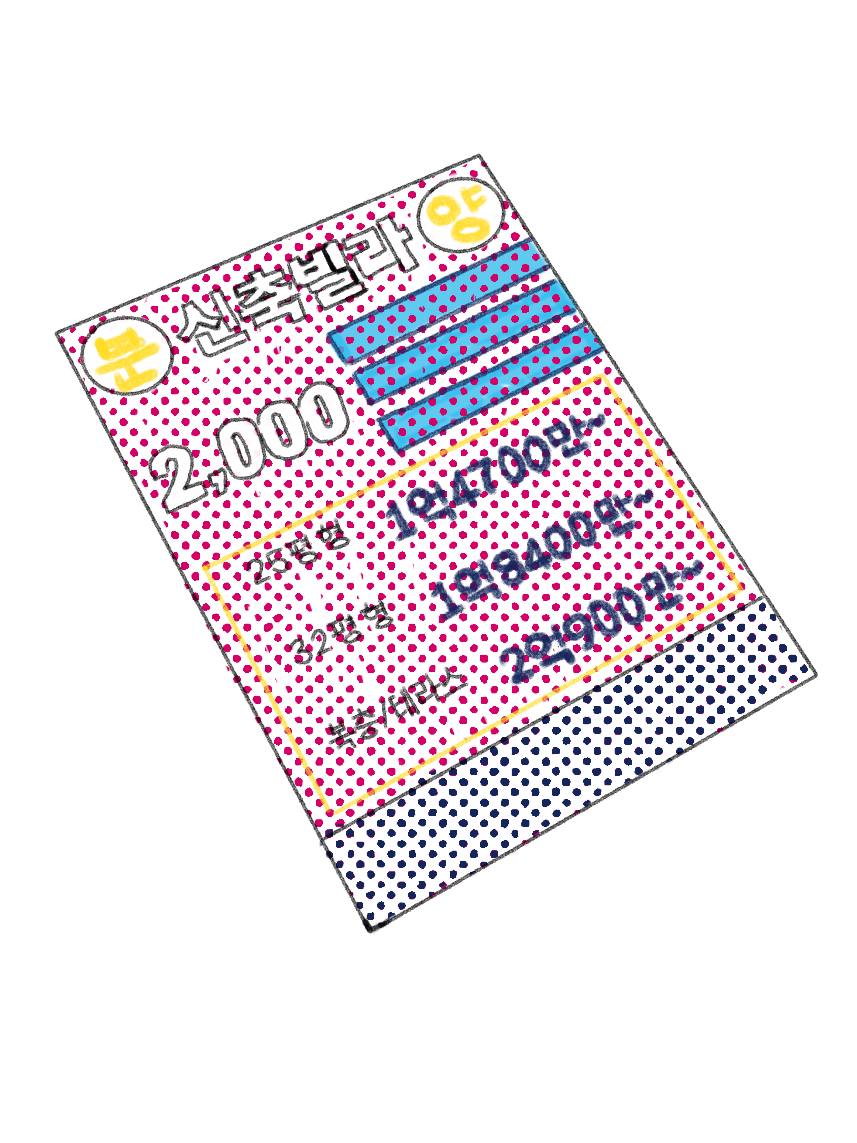 분 신축빌라 양
2,000
25평형 1억4700만~
32평형 1억8400만~
복층/테라스 2억900만~